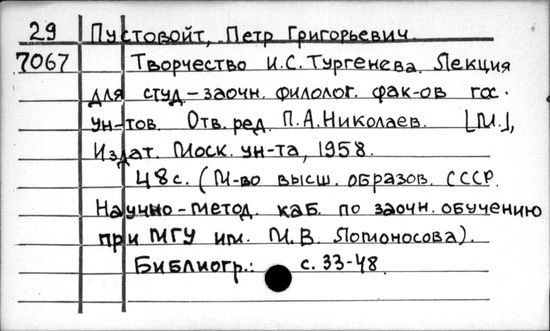 29 Пустовойт, Петр Григорьевич.
7067 Творчество И.С. Тургенева. Лекция
для студ-заочн. филолог. фак-ов гос.
ун-тов. Отв. ред. П.А. Николаев. [М.],
Издат. Моск. ун-та, 1958.
48 с. (М-во высш. образов. СССР.
Научно-метод. каб. по заочн. обучению
при МГУ им. М.В. Ломоносова).
Библиогр.: с. 33-48.